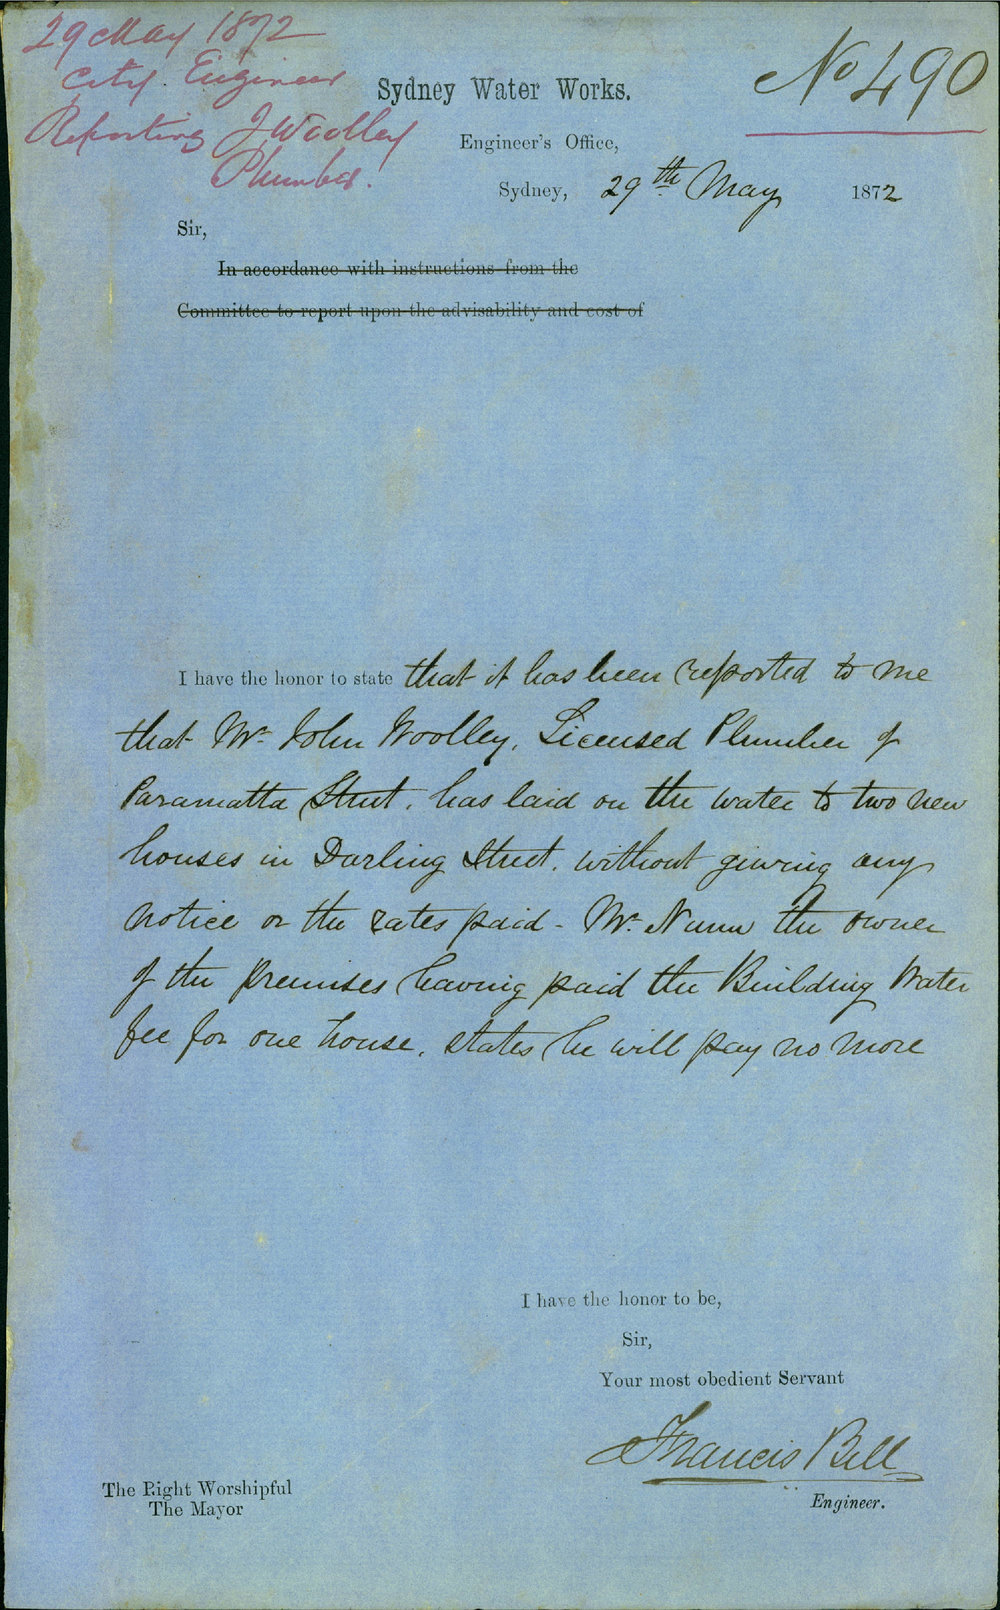 29 May 1872
City Engineer
Reporting J Woolley
Plumber.
No 490
Sydney Water Works.
Engineer's Office,
Sydney, 29th May 1872
Sir,
In accordance with instructions from the
Committee to report upon the advisability and cost of
I have the honor to state that it has been reported to me
that Mr John Woolley, Licensed Plumber of
Paramatta Street, has laid on the water to two new
houses in Darling Street, without giving any
notice or the rates paid - Mr. Nunn the owner
of the premises having paid the Building Water
fee for one house, states he will pay no more
I have the honor to be,
Sir,
Your most obedient Servant
Francis Bell
Engineer.
The Right Worshipful
The Mayor